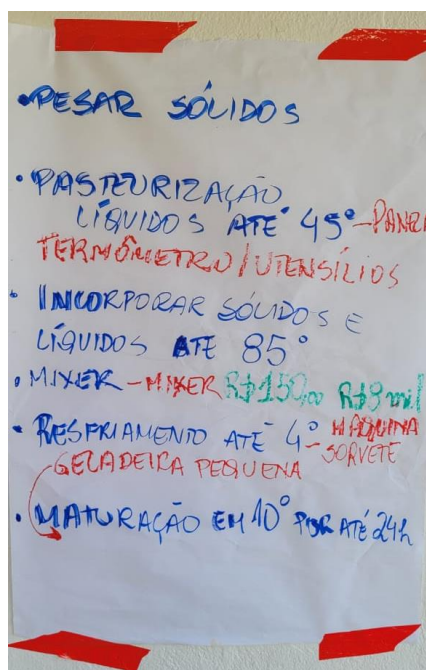 • PESAR SÓLIDOS
• PASTEURIZAÇÃO
LÍQUIDOS ATÉ 45° - PANELA
TERMÔMETRO / UTENSÍLIOS
• INCORPORAR SÓLIDOS E
LÍQUIDOS ATE 85°
• MIXER - MIXER R$150,00 R$9 mil
• RESFRIAMENTO ATÉ 4° - MÁQUINA
GELADEIRA PEQUENA SORVETE
• MATURAÇÃO EM 10° POR ATÉ 24h